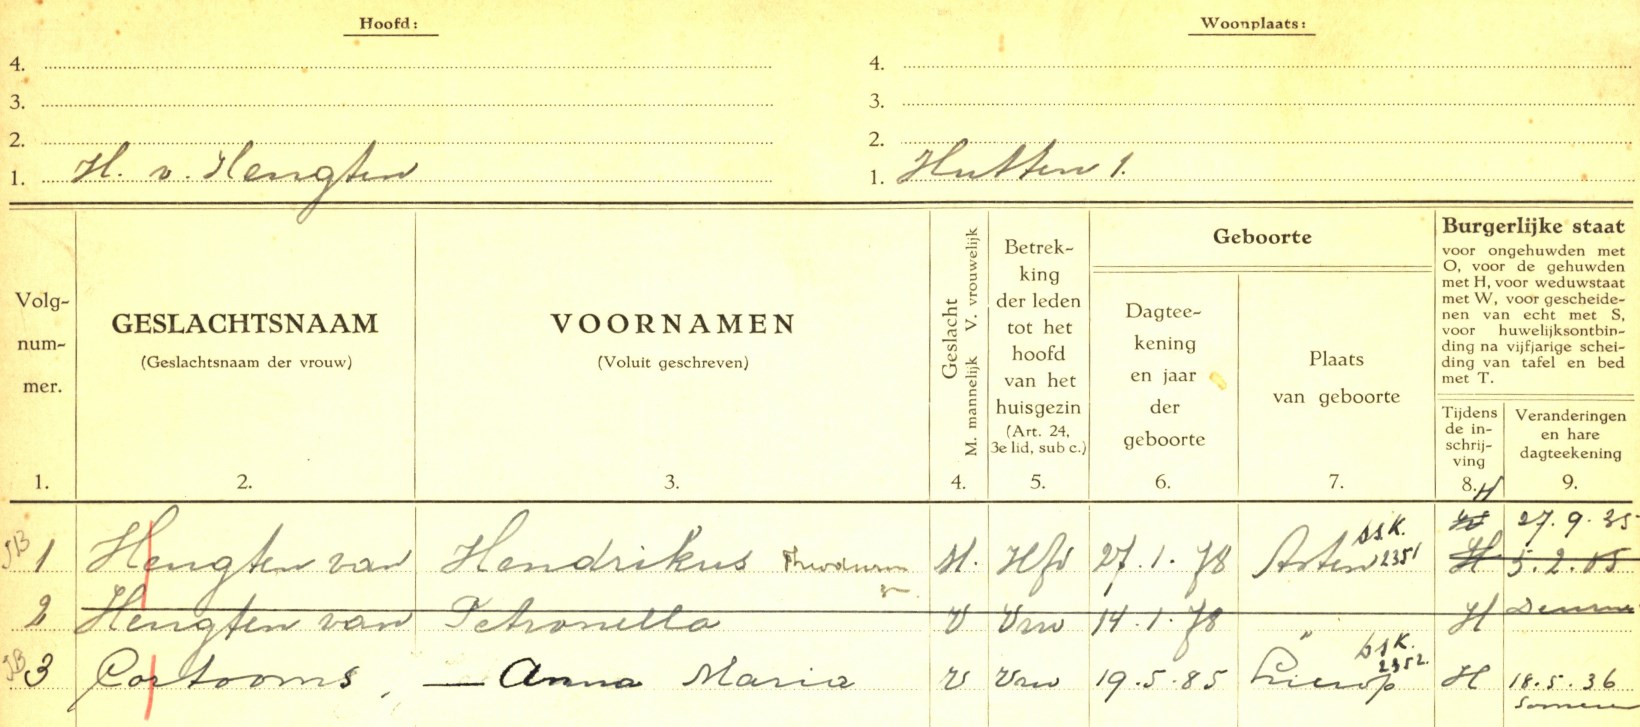 Hoofd: Woonplaats:
4. 4.
3. 3.
2. 2.
1. H. v. Hengten 1. Hutten 1.
Volg-
num-
mer.
1.
GESLACHTSNAAM
(Geslachtsnaam der vrouw)
2.
VOORNAMEN
(Voluit geschreven)
3.
Geslacht
M. mannelijk V. vrouwelijk
4.
Betrek-
king
der leden
tot het
hoofd
van het
huisgezin
(Art. 24,
3e lid, sub c.)
5.
Geboorte
Dagtee-
kening
en jaar
der
geboorte
6.
Plaats
van geboorte
7.
Burgerlijke staat
voor ongehuwden met
O, voor de gehuwden
met H, voor weduwstaat
met W, voor gescheide-
nen van echt met S,
voor huwelijksontbin-
ding na vijfjarige schei-
ding van tafel en bed
met T.
Tijdens
de in-
schrij-
ving
8.
Veranderingen
en hare
dagteekening
9.
H
27.9.35
1 Hengten van Hendrikus M. Hfd 27.1.78 Asten BSK. 2351 H 5.2.05
2 Hengten van Petronella V Vrw 14.1.78 " H Deurne
3 Cortooms, — Anna Maria V Vrw 19.5.85 Lierop BSK. 2352. H 18.5.36
Someren